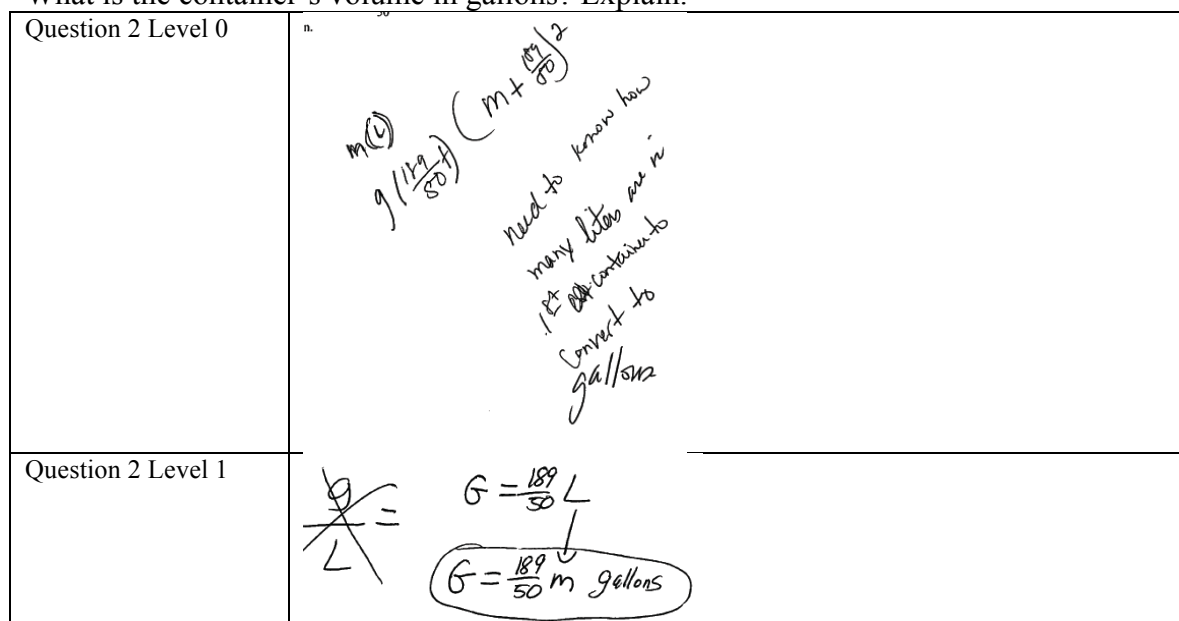 What is the container's volume in gallons? Explain.
Question 2 Level 0
n.
50
m(L)
g(189/50+) (m+189/50)2
need to know how
many liters are in
1st container to
convert to
gallons
Question 2 Level 1
g/L =
G = 189/50 L
G = 189/50 m gallons